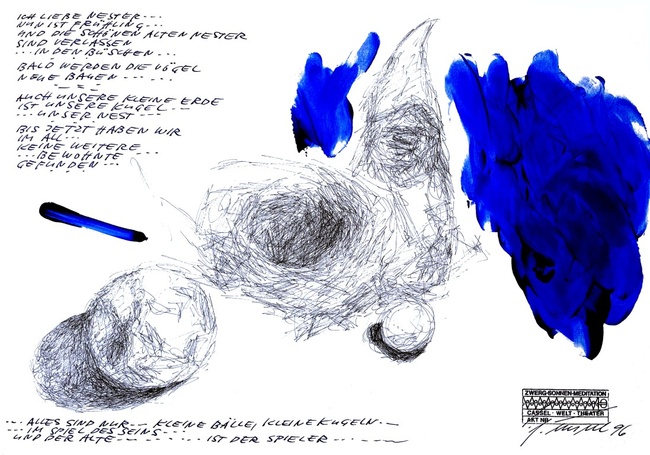 ICH LIEBE NESTER---
NUN IST FRÜHLING---
UND DIE SCHÖNEN ALTEN NESTER
SIND VERLASSEN
---IN DEN BÜSCHEN---
BALD WERDEN DIE VÖGEL
NEUE BAUEN---
AUCH UNSERE KLEINE ERDE
IST UNSERE KUGEL---
---UNSER NEST---
BIS JETZT HABEN WIR
IM ALL---
KEINE WEITERE
---BEWOHNTE---
GEFUNDEN---
---ALLES SIND NUR--- KLEINE BÄLLE, KLEINE KUGELN.---
---IM SPIEL DES SEINS---
UND DER ALTE--- ---IST DER SPIELER---
ZWERG-SONNEN-MEDITATION
CASSEL·WELT·THEATER
AKT NR
96